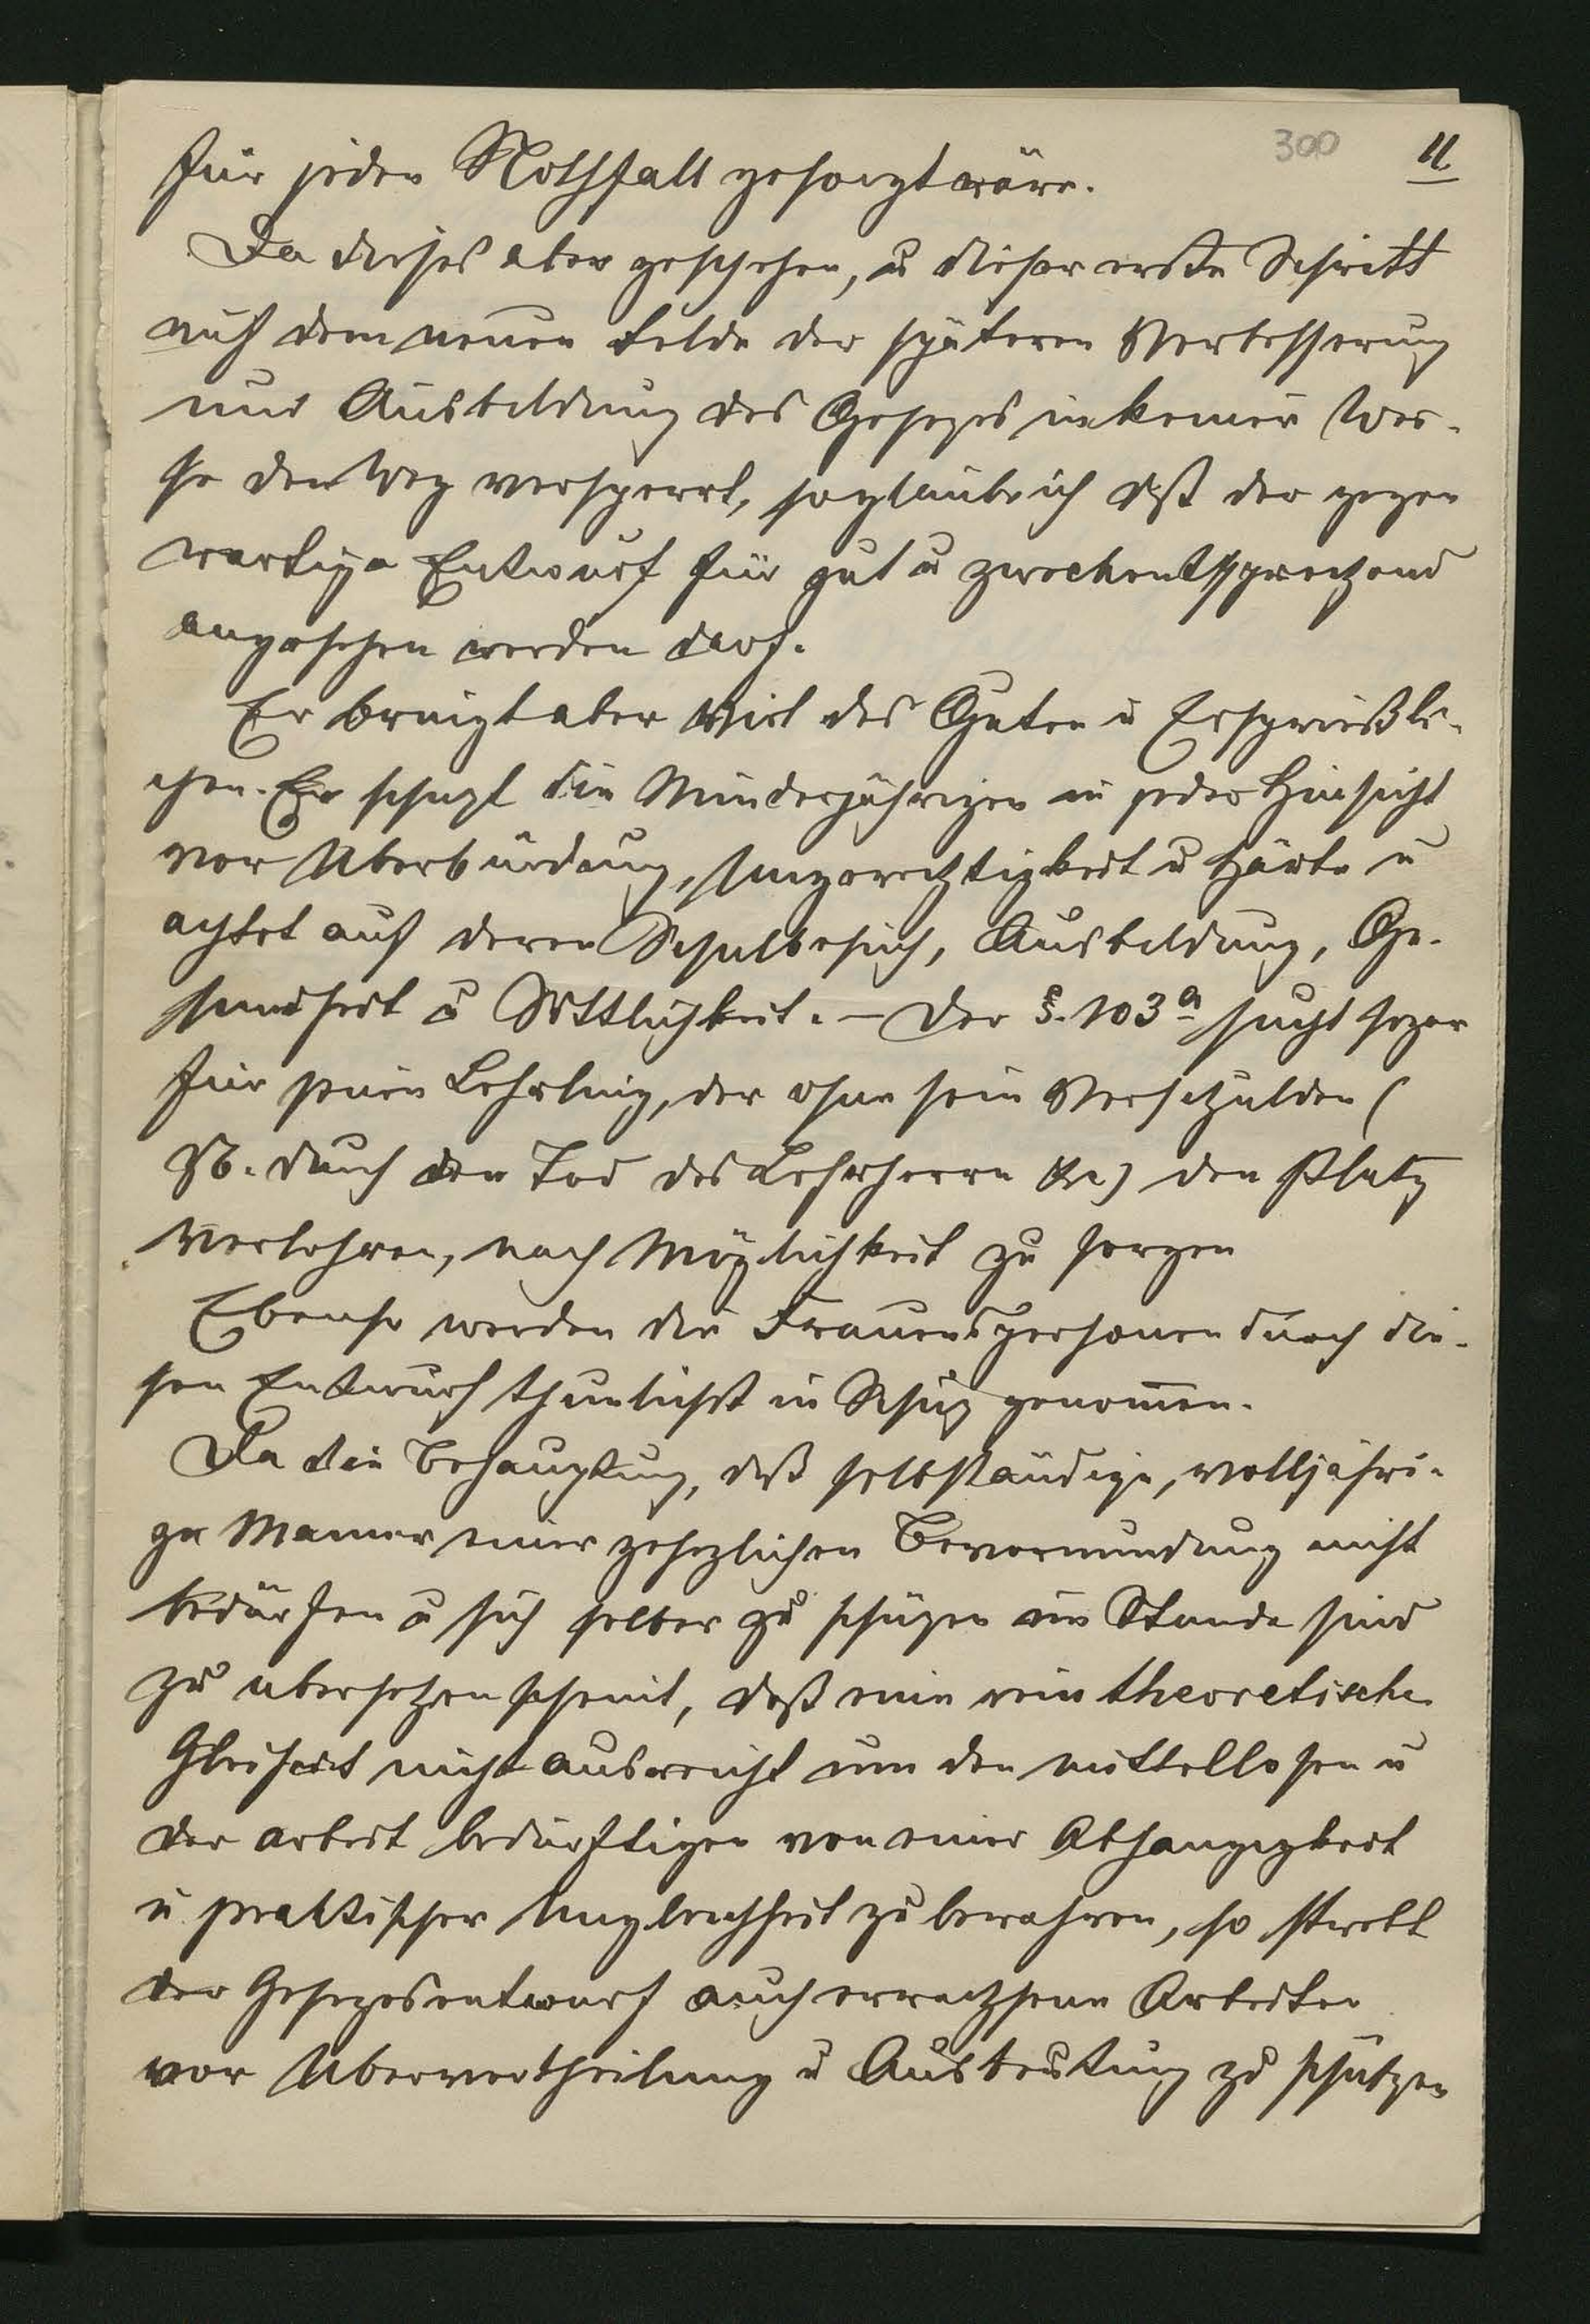 300 11.
für jeden Nothfall gesorgt wäre.
Da dieses aber geschehen, u dieser erste Schritt
auf dem neuen Felde der späteren Verbesserung
und Ausbildung des Gesezes in keiner Wei-
se den Weg versperrt, so glaube ich daß der gegen
wartige Entwurf für gut u zweckentsprechend
angesehen werden darf.
Er bringt aber Viel des Guten u Ersprießli-
chen. Er schuzt die Minderjährigen in jeder Hinsicht
vor Uberbürdung, Ungerechtigkeit u Härte u
achtet auf deren Schulbesuch, Ausbildung, Ge-
sundheit u Sittlichkeit. – Der §. 103a sucht sogar
für jenen Lehrling, der ohne sein Verschulden (
z.B. durch den Tod des Lehrherrn &c) den Platz
verlohren, nach Möglichkeit zu sorgen
Ebenso werden die Frauenspersonen durch die-
sen Entwurf thunlichst in Schuz genomen.
Da die Behauptung, daß selbständige, volljähri-
ge Manner einer gesezlichen Bevormundung nicht
bedürfen u sich selber zu schüzen im Stande sind
zu ubersehen scheint, daß eine rein theoretische
Gleichheit nicht ausreicht um den mittellosen u
der arbeit bedürftigen von einer Abhangigkeit
u praktischer Ungleichheit zu bewahren, so strebt
der Gesezesentwurf auch erwachsene Arbeiter
vor Ubervortheilung u Ausbeutung zu schützen